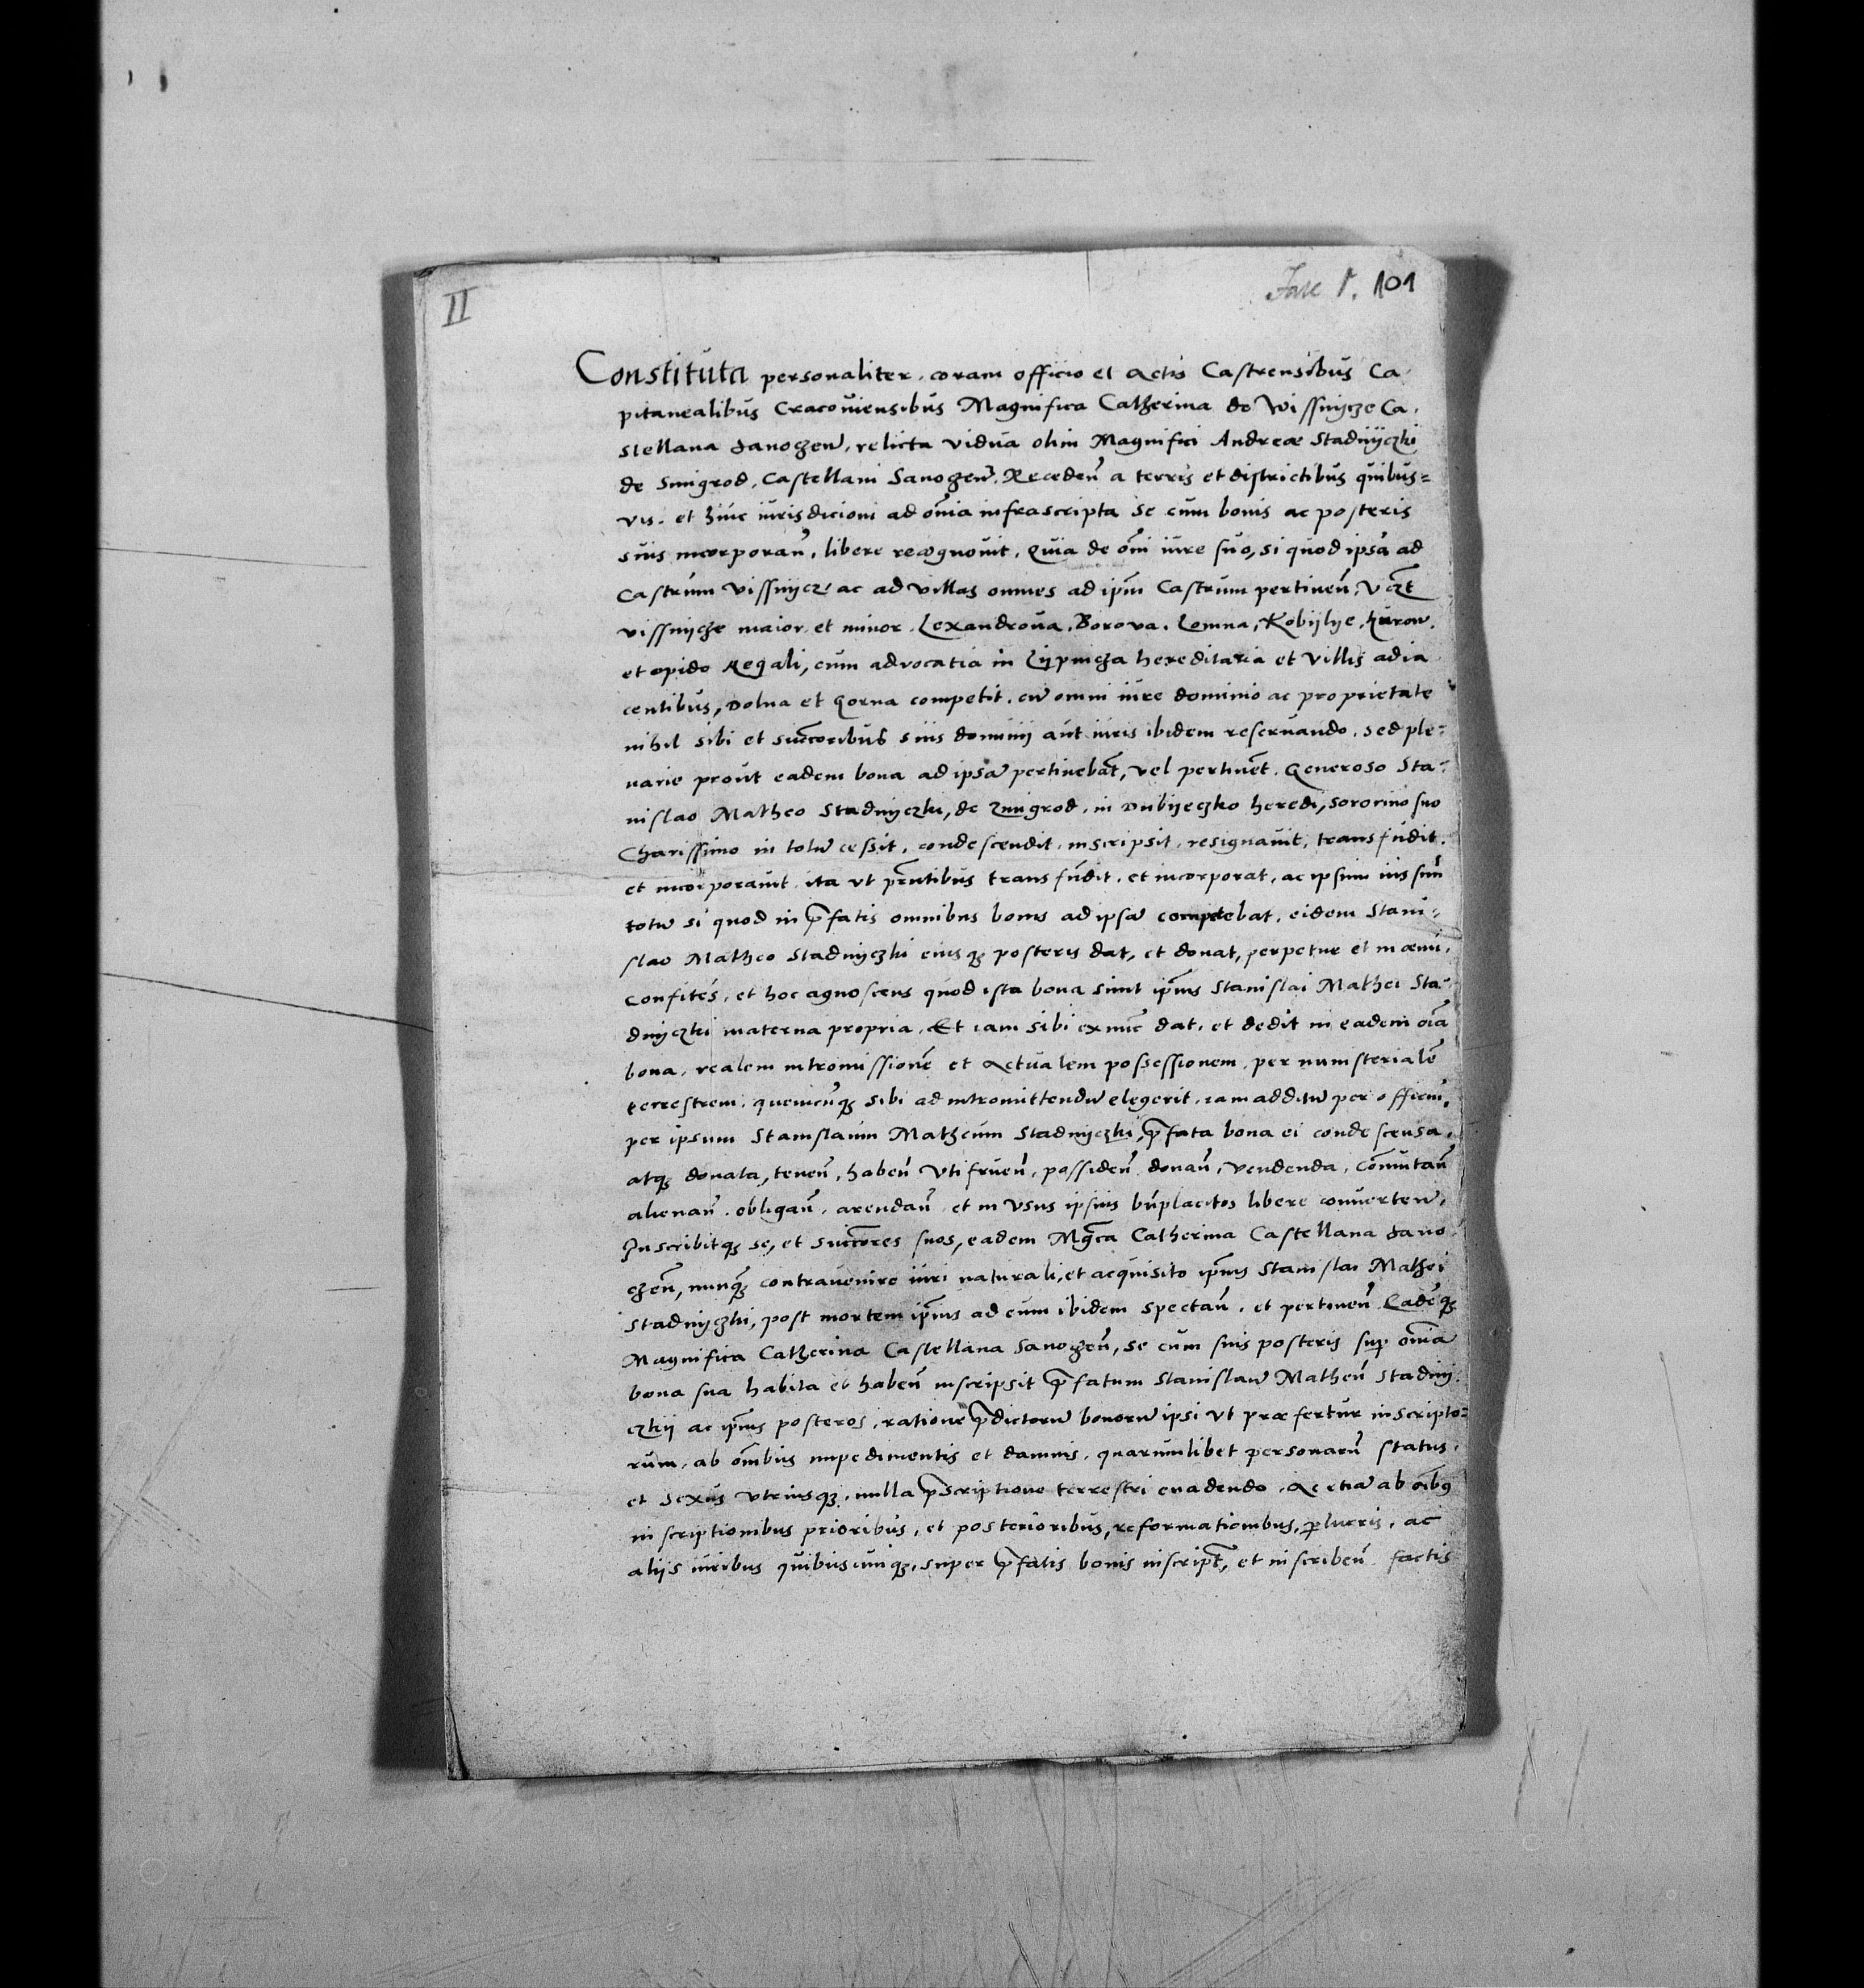 II
Fasc 1. 101
Constituta personaliter. coram officio et Actis Castrensibus Ca-
pitanealibus Cracoviensibus Magnifica Catherina de Wissnycze Ca.
stellana Sanoczen̄, relicta vidua olim Magnifici Andreae Stadnyczki
de Smigrod, Castellani Sanoczen̄. Receden̄ a terris et districtibus quibus=
vis. et huic iurisdicioni ad om̄ia infrascripta se cum bonis ac posteris
suis incorporan̄. libere recognovit. Quia de om̄i iure suo, si quod ipsa ad
Castrum Vissnycz ac ad villas omnes ad ip̄m Castrum pertinen̄, Vczt
vissnycze maior et minor. Lexandrova. Borova. Lomna, Kobijlye. Kurow.
et opido Regali, cum advocatia in Lijpnicza hereditaria et villis adia
centibus, Dolna et Gorna competit. cū omni iure dominio ac proprietate
nihil sibi et succ̄oribus suis dominij aut iuris ibidem reservando. sed ple-
narie prout eadem bona ad ipsā pertinebāt, vel pertinēt. Generoso Sta-
nislao Matheo Stadnyczki, de Zmigrod. in Dubyeczko heredi, sororino suo
Charissimo in totū cessit. condescendit. inscripsit. resignavit, transfudit.
et incorporavit ita ut pr̄ntibus transfudit. et incorporat, ac ipsum ius suū
totū si quod in p̄fatis omnibus bonis ad ipsā competebat. eidem Stani-
slao Matheo Stadnyczki eiusq; posteris dat, et donat, perpetue et in aevū.
confites, et hoc agnoscens quod ista bona sunt ip̄ius Stanislai Mathei Sta-
dnyczki materna propria. Et iam sibi ex nūc dat. et dedit in eadem oīa
bona. realem intromissionē et actualem possessionem. per ministerialē
terrestrem. quemcūq; sibi ad intromittendū elegerit. iam additū per officiū.
per ipsum Stanislaum Matheum Stadnyczki, p̄fata bona ei condescensa.
atq; donata, tenen̄, haben̄ utifruen̄, possiden̄ donan̄, vendenda, com̄utan̄
alienan̄. obligan̄. arendan̄ et in usus ipsius bn̄placitos libere converten̄.
Inscribitq; se, et succ̄ores suos, eadem Mḡca Catherina Castellana Sano
czen̄, nunq̄; contravenire iuri naturali, et acquisito ip̄ius Stanislai Mathei
Stadnyczki, post mortem ip̄ius ad eum ibidem spectan̄. et pertinen̄ Eadēq;
Magnifica Catherina Castellana Sanoczen̄, se cum suis posteris sup om̄ia
bona sua habita et haben̄ inscripsit p̄fatum Stanislaū Matheū Stadny.
czkij ac ip̄ius posteros. ratione p̄dictorū bonorū ipsi ut praefertur inscripto=
rum. ab om̄bus impedimentis et damnis. quarumlibet personarū status.
et sexus utriusq;. nulla p̄scriptione terrestri evadendo. Ac etiā ab oībus
inscriptionibus prioribus, et posterioribus, reformationibus, p̱lucris. ac
alijs iuribus quibuscunq;. super p̄fatis bonis inscript̄, et inscriben̄ factis